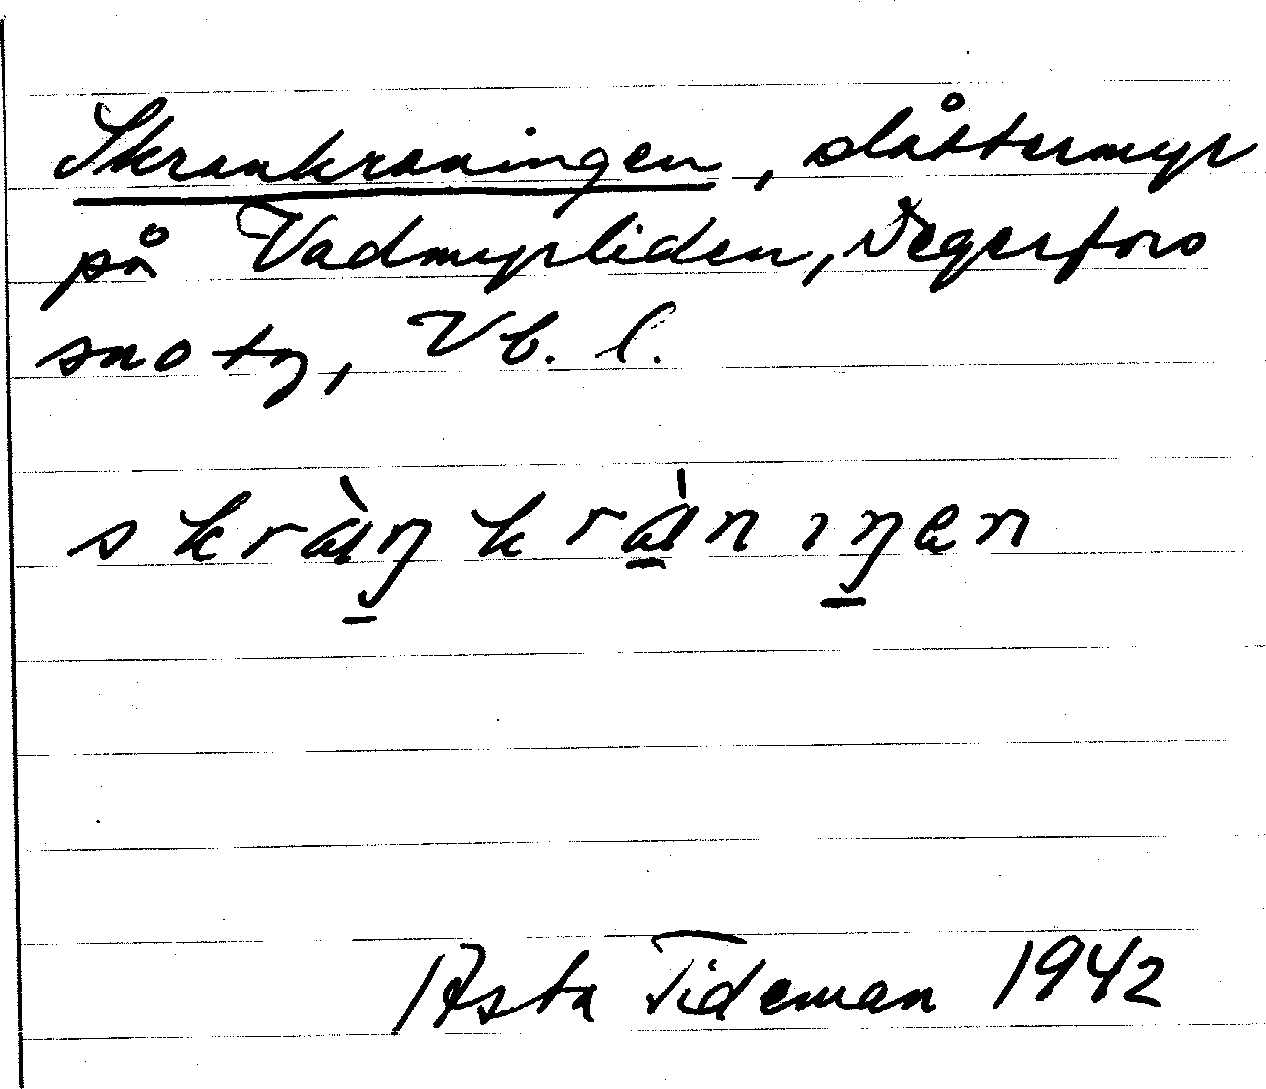 Skrankraningen, slåttermyr
på Vadmyrliden, Degerfors
snotg, Vb. l.
skràŋkràniŋen
Asta Tideman 1942